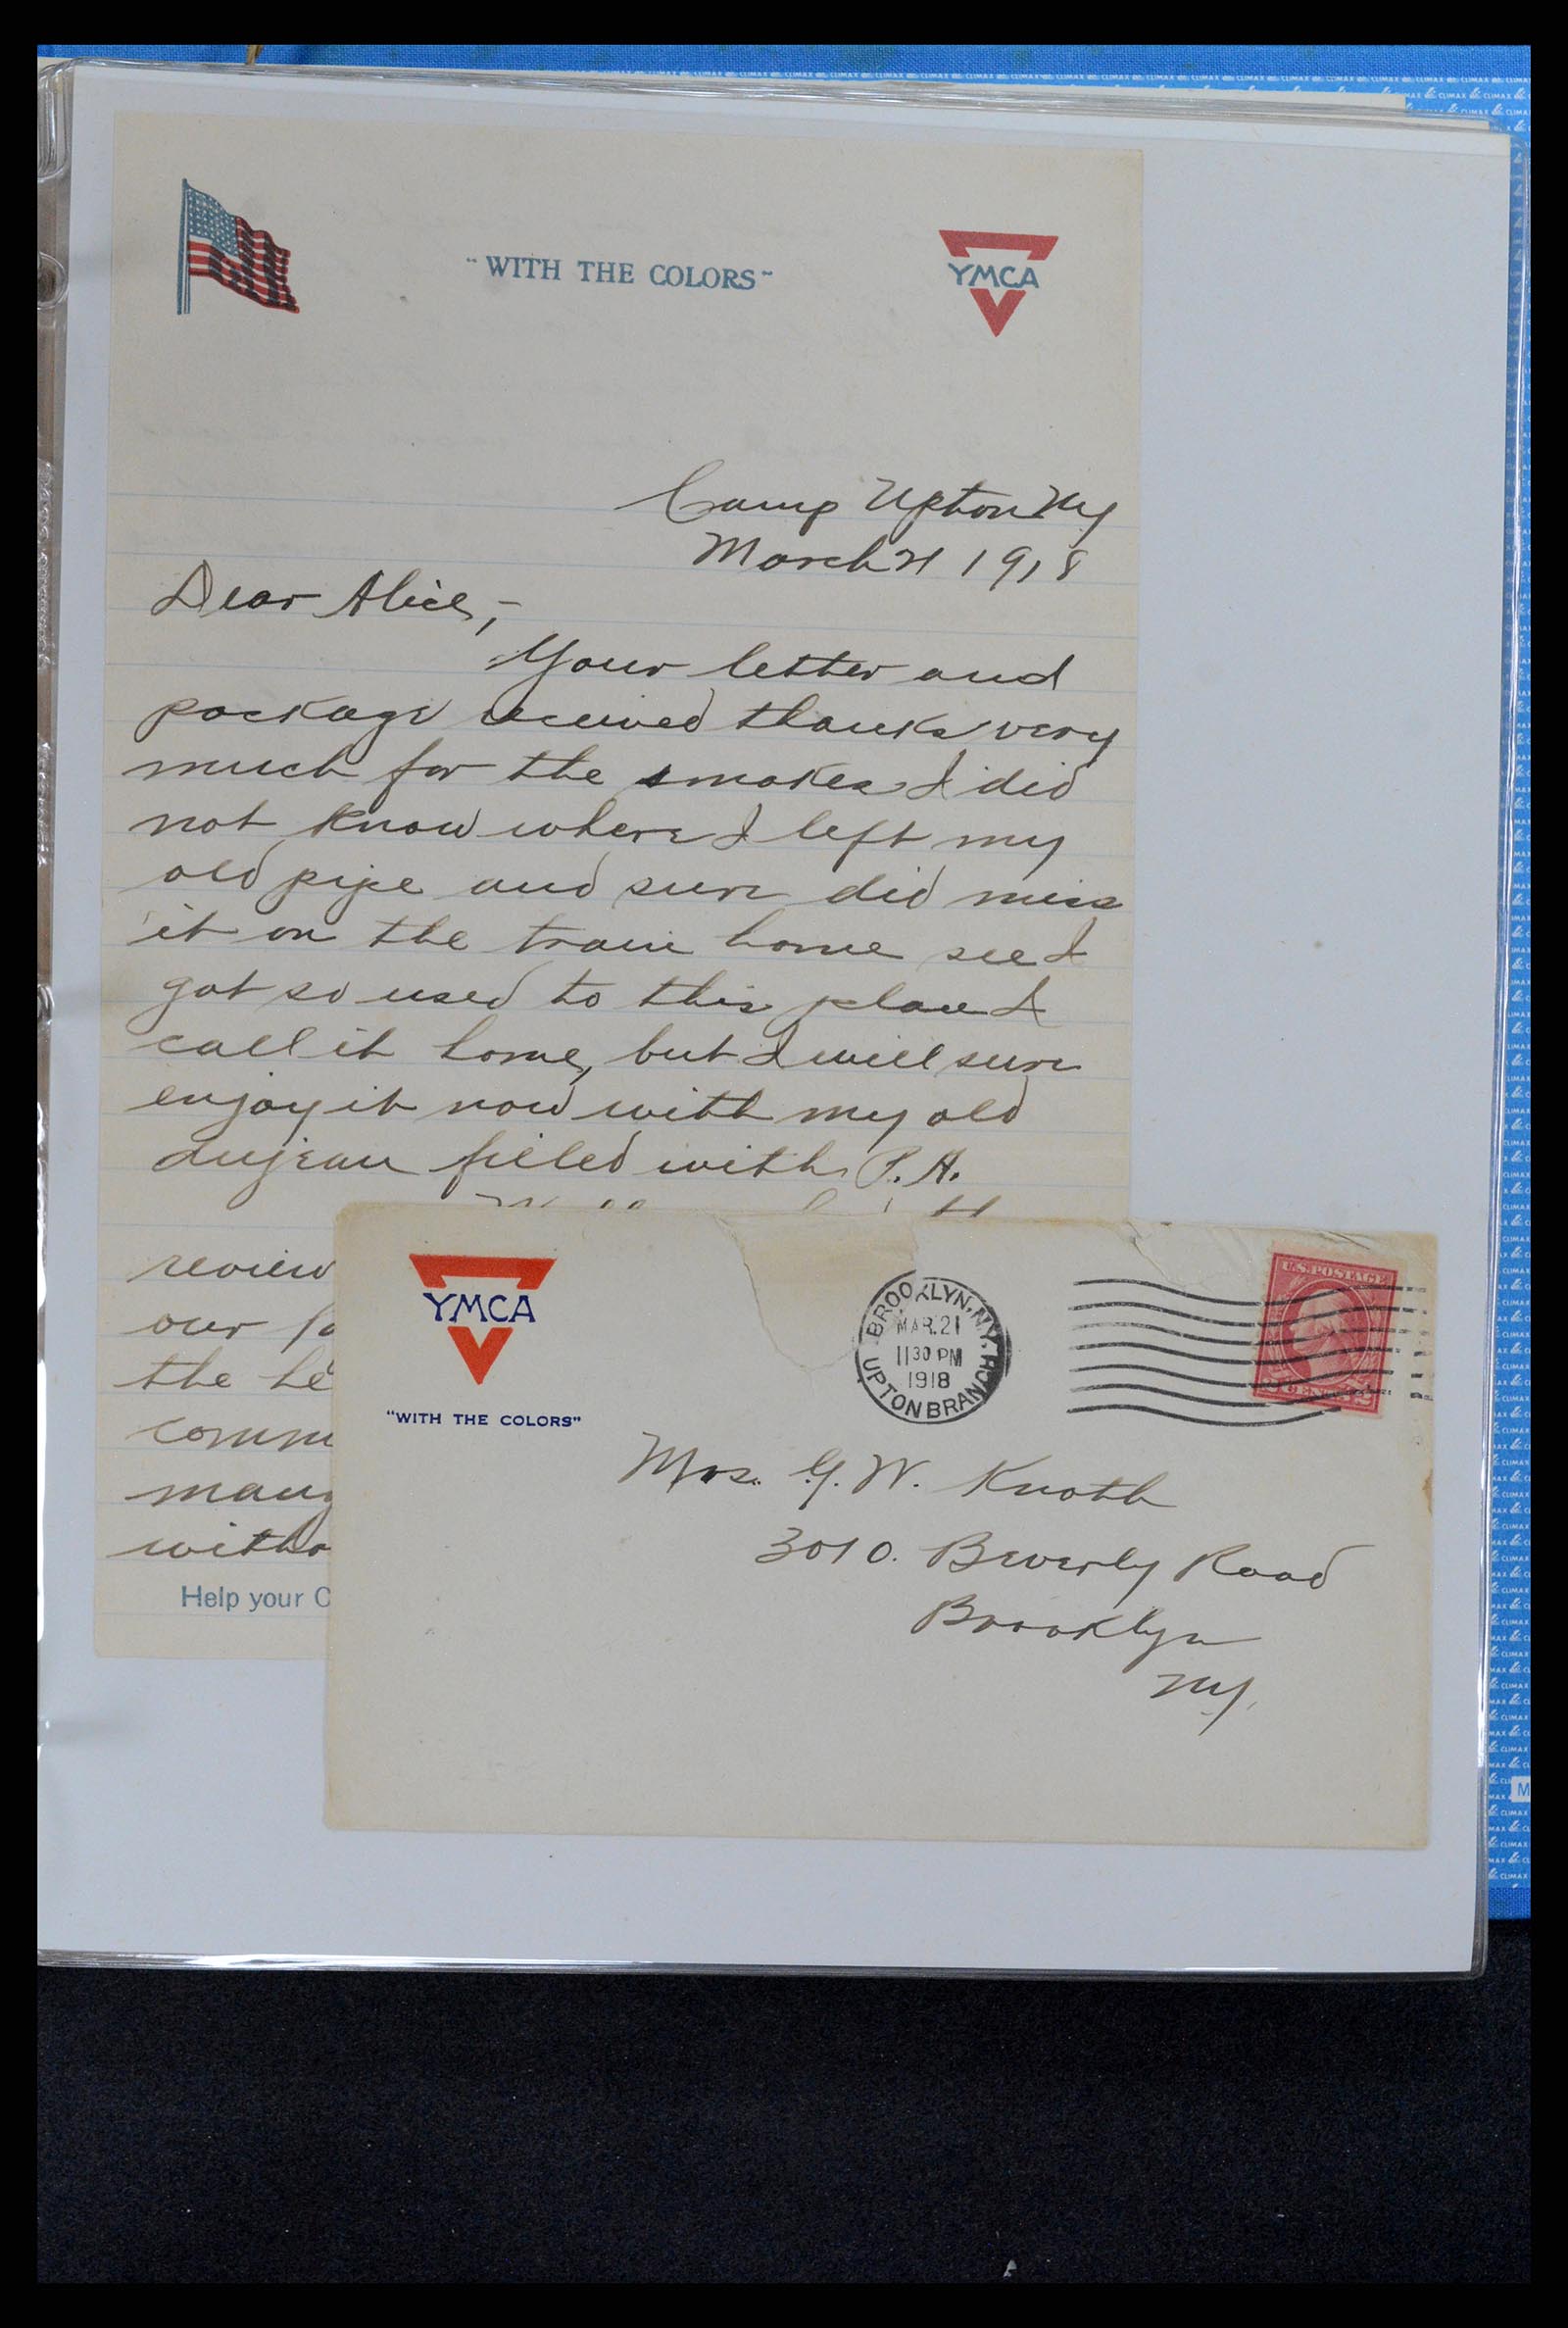 "WITH THE COLORS"
YMCA
Camp Upton NY
March 21 1918
Dear Alice,-
Your letter and
package received thanks very
much for the smokes I did
not know where I left my
old pipe and sure did miss
it on the train home see I
got so used to this place I
call it home, but I will sure
enjoy it now with my old
filled with P.A.
review
our
the
comm
many
witho
Help your C
YMCA
"WITH THE COLORS"
BROOKLYN, N.Y.
MAR. 21
11 30 PM
1918
UPTON BRANCH
U.S. POSTAGE
2 CENTS 2
Mrs. G. W. Knoth
3010. Beverly Road
Brooklyn
NY.
CLIMAX